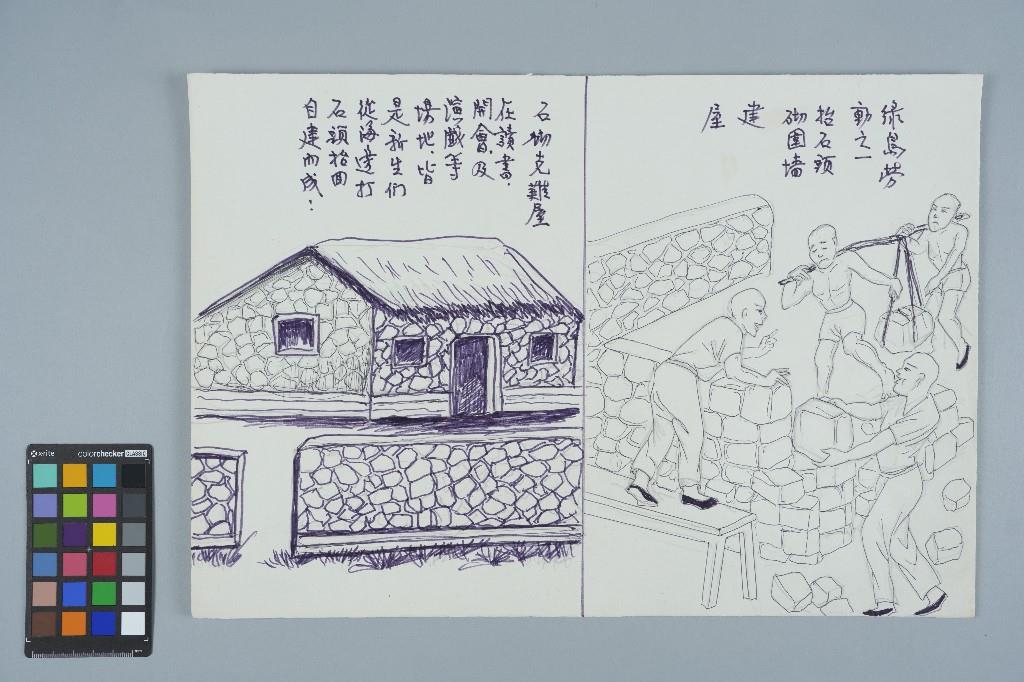 綠島勞
動之一
抬石頭
砌圍墙
建
屋
石砌克難屋
在讀書.
開會.及
演戲等
場地.皆
是新生们
從海邊打
石頭抬回
自建而成!
x-rite
colorchecker CLASSIC